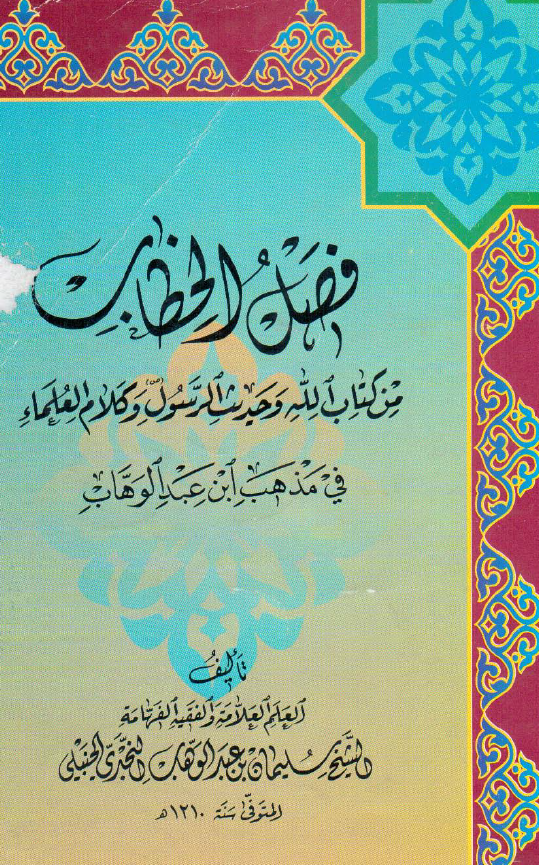 فَصْلُ الخِطَابِ
مِن كِتَابِ اللهِ وَحَدِيثِ الرَّسُولِ وَكَلَامِ العُلَمَاءِ
فِي مَذْهَبِ ابْنِ عَبْدِ الوَهَّابِ
تَأليفُ
العَلَمِ العَلَّامَةِ وَالفَقِيهِ الفَهَّامَةِ
الشَّيْخ سُلَيْمان بن عَبْد الوَهَّاب النَّجْدِيّ الحَنْبَلِي
المتوَفّى سَنَة ١٢١٠ه